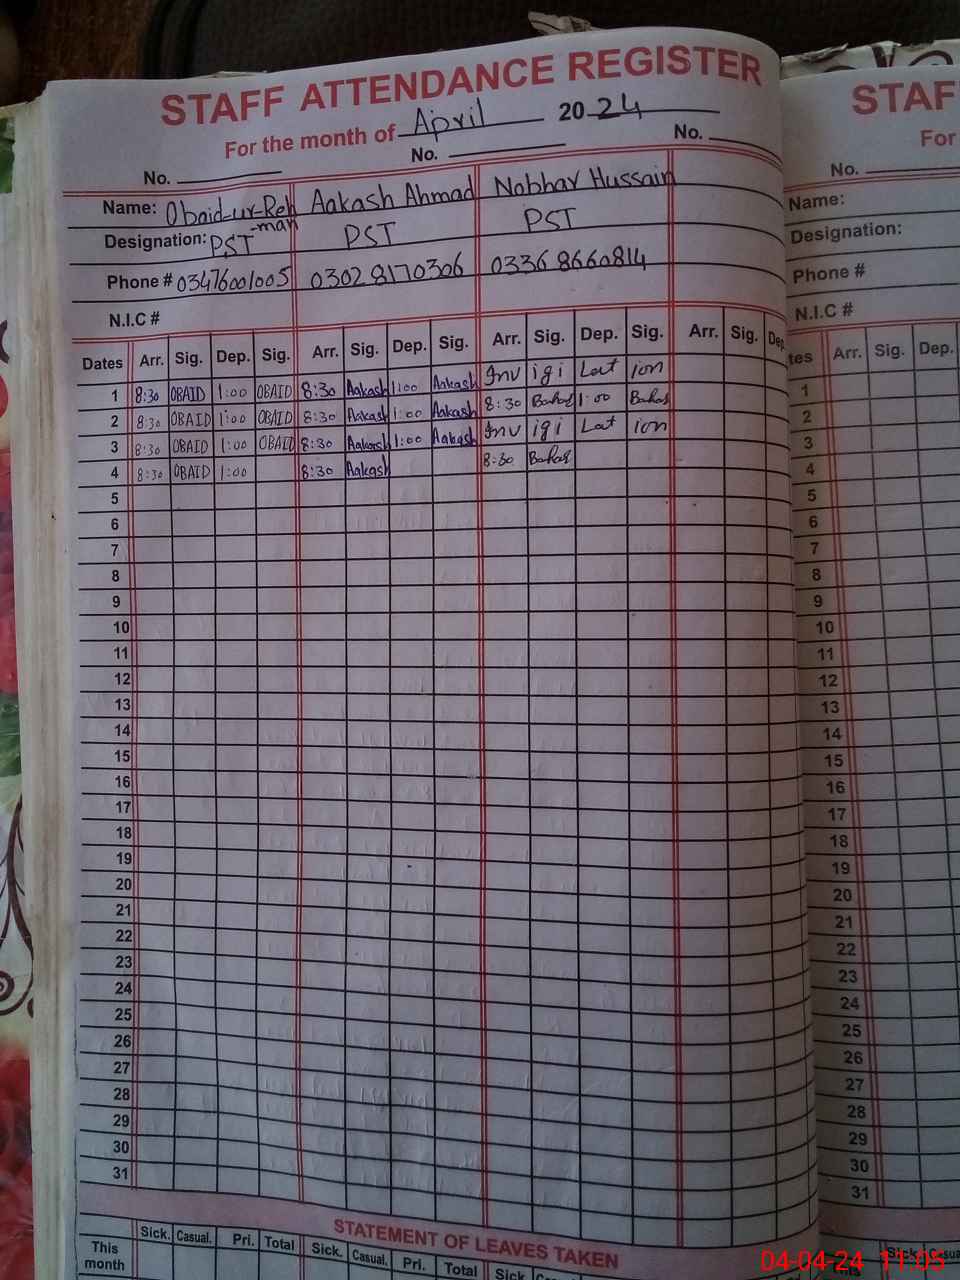 STAFF ATTENDANCE REGISTER
For the month of April 2024
No. No. No.
Name: Obaid-ur-Reh-man Aakash Ahmad Nobhar Hussain
Designation: PST PST PST
Phone # 03476001005 03028170306 03368660814
N.I.C #
Dates Arr. Sig. Dep. Sig. Arr. Sig. Dep. Sig. Arr. Sig. Dep. Sig. Arr. Sig. Dep.
1 8:30 OBAID 1:00 OBAID 8:30 Aakash 1:00 Aakash Inv igi Lat ion
2 8:30 OBAID 1:00 OBAID 8:30 Aakash 1:00 Aakash 8:30 1:00
3 8:30 OBAID 1:00 OBAID 8:30 Aakash 1:00 Aakash Inv igi Lat ion
4 8:30 OBAID 1:00 8:30 Aakash 8:30
5
6
7
8
9
10
11
12
13
14
15
16
17
18
19
20
21
22
23
24
25
26
27
28
29
30
31
STATEMENT OF LEAVES TAKEN
Sick. Casual. Pri. Total Sick. Casual. Pri. Total Sick
This month
STAF
For
No.
Name:
Designation:
Phone #
N.I.C #
tes Arr. Sig. Dep.
1
2
3
4
5
6
7
8
9
10
11
12
13
14
15
16
17
18
19
20
21
22
23
24
25
26
27
28
29
30
31
Sick Casu
04-04-24 11:05